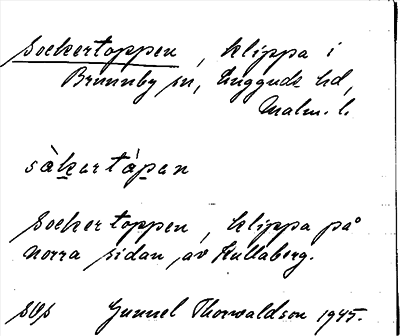 Sockertoppen, klippa i
Brunnby sn, Luggude hd,
Malm. l.
sàkertápen
Sockertoppen, klippa på
norra sidan av Kullaberg.
Gunnel Thorvaldson 1945.